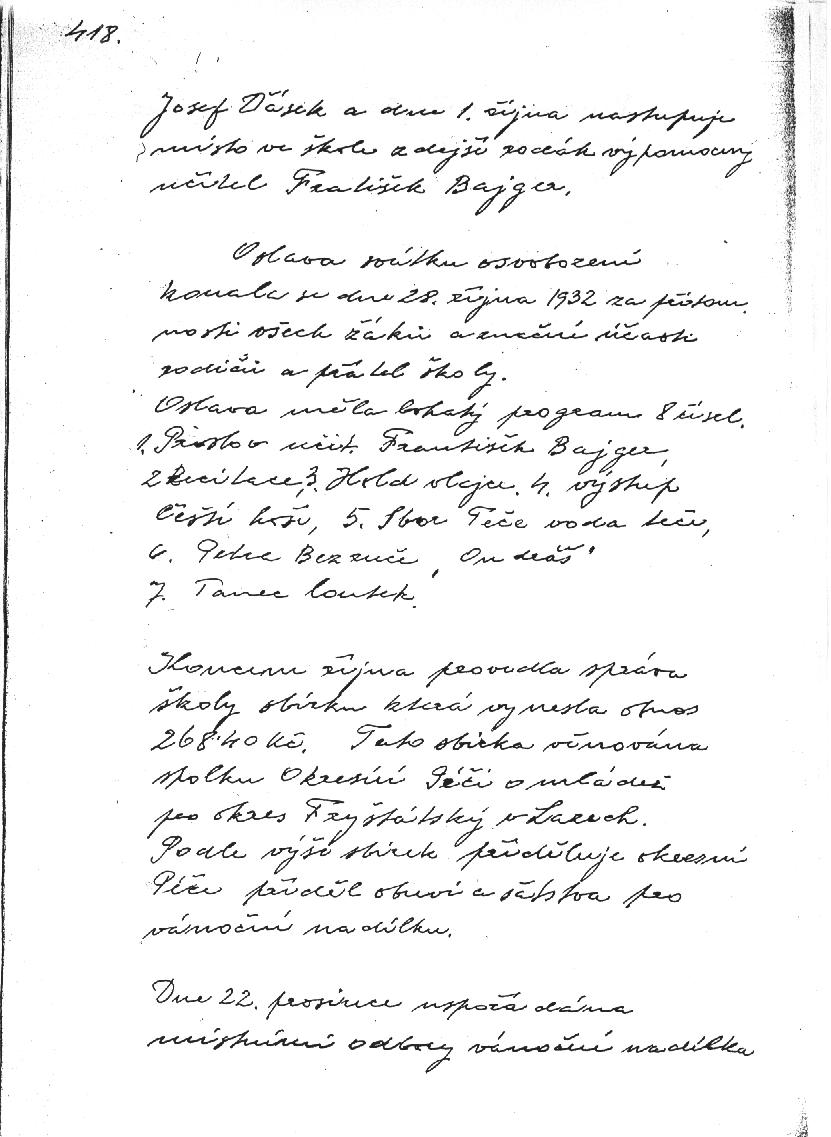 418.
Josef Dášek a dne 1. října nastupuje
místo ve škole zdejší rodák výpomocný
učitel Fratišek Bajger.
Oslava svátku osvobození
konala se dne 28. října 1932 za přítom
nosti všech žáků a značné účasti
rodičů a přátel školy.
Oslava měla bohatý program 8 čísel.
1. Proslov učit. František Bajger,
2 Recitace, 3. Hold vlajce. 4. výstup
Čeští hoši, 5. Sbor Teče voda teče,
6. Petra Bezruče, Ondráš'
7. Tanec loutek.
Koncem října provedla správa
školy sbírku která vynesla obnos
268·40 Kč. Tato sbírka věnována
spolku Okresní Péči o mládež
pro okres Fryštátský v Lazech.
Podle výše sbírek přiděluje okresní
Péče příděl obuvi a šatstva pro
vánoční nadílku.
Dne 22. prosince uspořádána
místními odbory vánoční nadílka